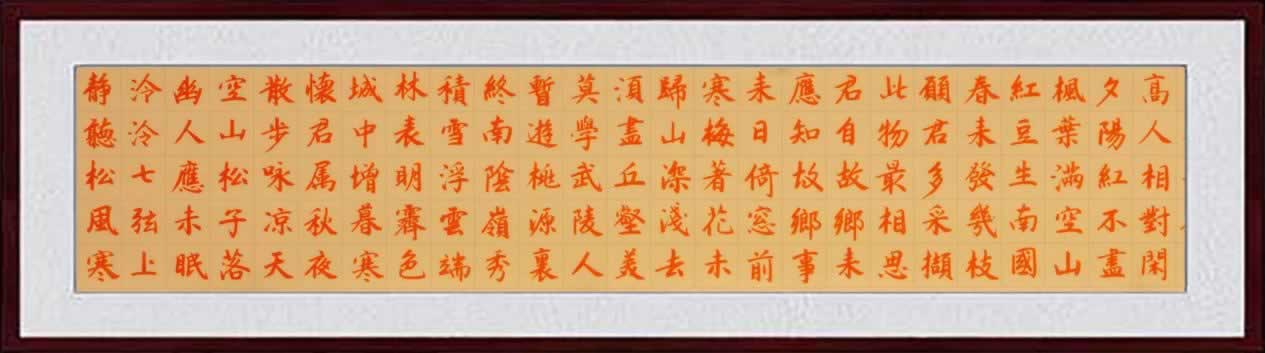 高人相對閑
夕陽紅不盡
楓葉滿空山
紅豆生南國
春来發幾枝
願君多采擷
此物最相思
君自故鄉来
應知故鄉事
来日倚窓前
寒梅著花未
歸山深淺去
須盡丘壑美
莫學武陵人
暫遊桃源裏
終南陰嶺秀
積雪浮雲端
林表明霽色
城中增暮寒
懷君属秋夜
散步咏凉天
空山松子落
幽人應未眠
泠泠七弦上
静聽松風寒